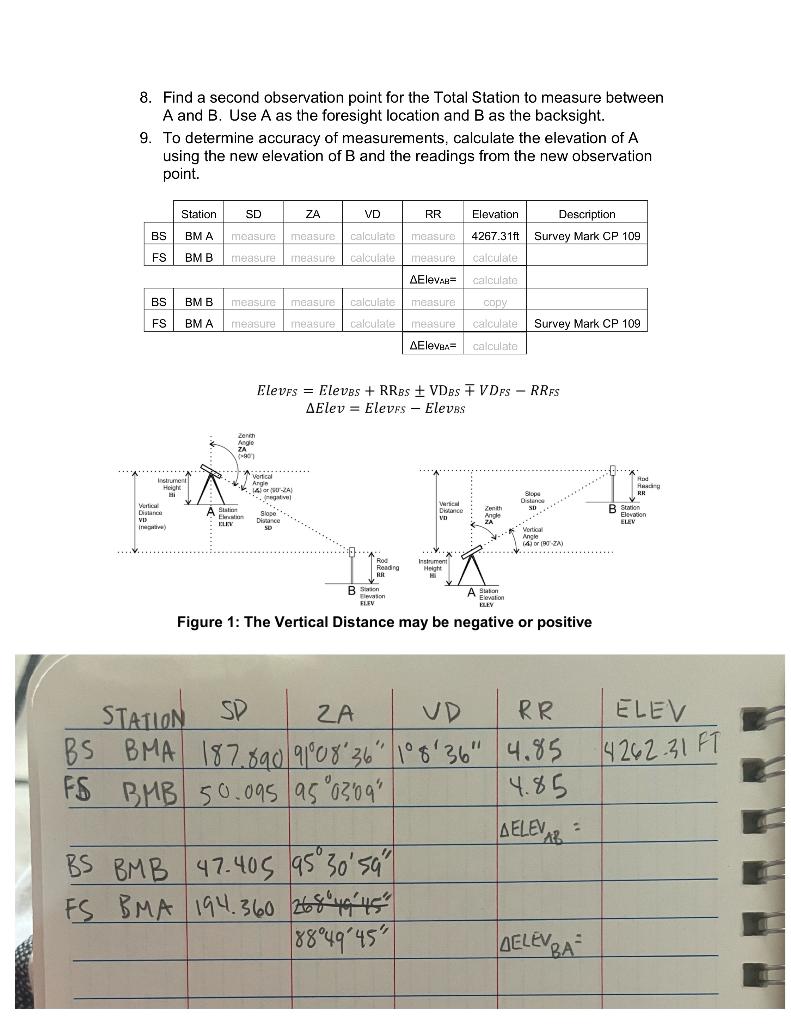 8. Find a second observation point for the Total Station to measure between
A and B. Use A as the foresight location and B as the backsight.
9. To determine accuracy of measurements, calculate the elevation of A
using the new elevation of B and the readings from the new observation
point.
Station SD ZA VD RR Elevation Description
BS BM A measure measure calculate measure 4267.31ft Survey Mark CP 109
FS BM B measure measure calculate measure calculate
ΔElevAB= calculate
BS BM B measure measure calculate measure copy
FS BM A measure measure calculate measure calculate Survey Mark CP 109
ΔElevBA= calculate
ElevFS = ElevBS + RRBS ± VDBS ∓ VDFS − RRFS
ΔElev = ElevFS − ElevBS
Zenith
Angle
ZA
(>90°)
Instrument
Height
Hi
Vertical
Angle
(∡) or (90°-ZA)
(negative)
Vertical
Distance
VD
(negative)
A Station
Elevation
ELEV
Slope
Distance
SD
Rod
Reading
RR
B Station
Elevation
ELEV
Vertical
Distance
VD
Zenith
Angle
ZA
Slope
Distance
SD
Rod
Reading
RR
B Station
Elevation
ELEV
Vertical
Angle
(∡) or (90°-ZA)
Instrument
Height
Hi
A Station
Elevation
ELEV
Figure 1: The Vertical Distance may be negative or positive
STATION SD ZA VD RR ELEV
BS BMA 187.890 91°08'36" 1°8'36" 4.85 4262.31 FT
FS BMB 50.095 95°03'09" 4.85
ΔELEVAB =
BS BMB 47.405 95°30'59"
FS BMA 194.360 268°49'45"
88°49'45" ΔELEVBA=